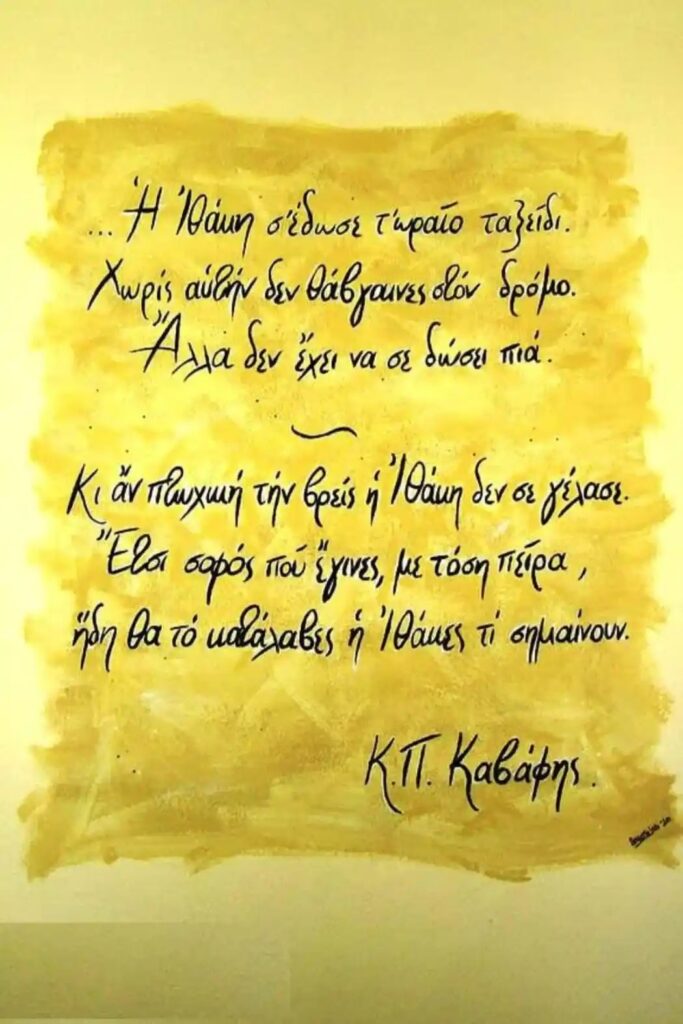 ... Ἡ Ἰθάκη σ'ἔδωσε τ'ὡραῖο ταξεῖδι.
Χωρίς αὐτήν δεν θἄβγαινες στόν δρόμο.
Ἄλλα δεν ἔχει να σε δώσει πιά.
Κι ἄν πτωχική τήν βρεῖς ἡ Ἰθάκη δεν σε γέλασε.
Ἔτσι σοφός πού ἔγινες, με τόση πεῖρα,
ἤδη θα τό κατάλαβες ἡ Ἰθάκες τί σημαίνουν.
Κ.Π. Καβάφης.